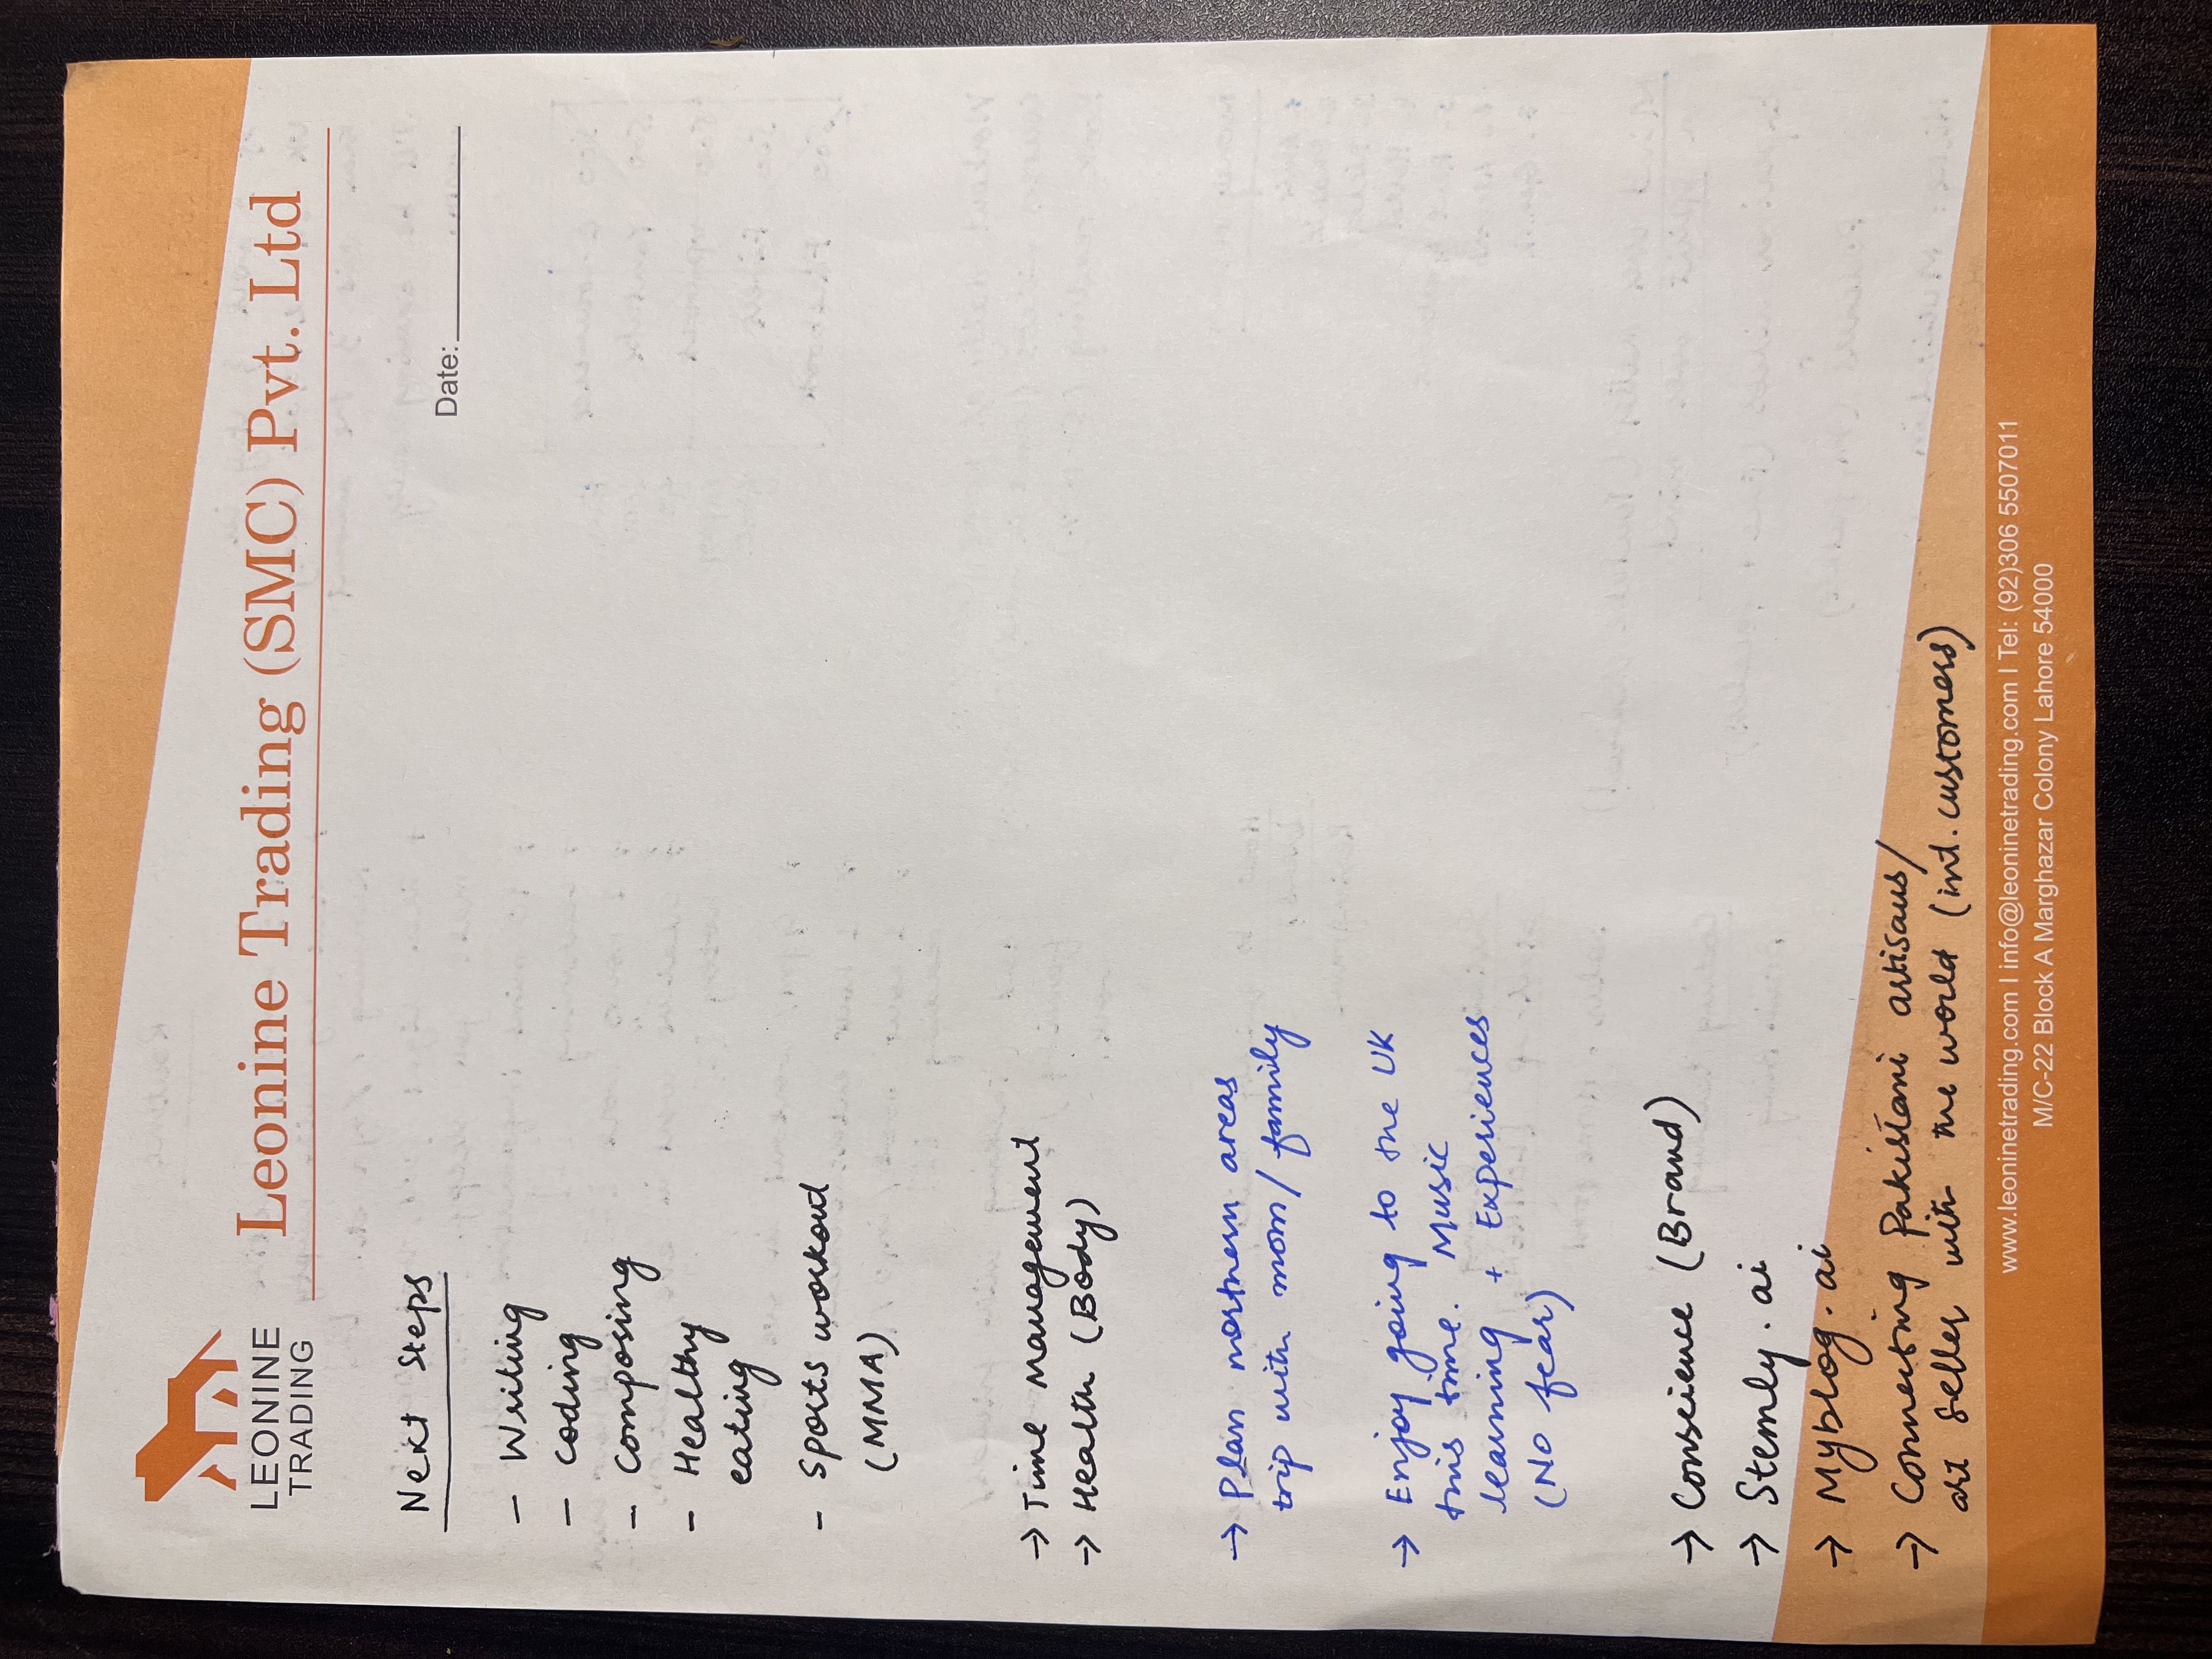 LEONINE
TRADING
Leonine Trading (SMC) Pvt. Ltd
Date:
Next Steps
- Writing
- coding
- Composing
- Healthy
eating
- Sports workout
(MMA)
→ Time Management
→ Health (Body)
→ Plan northern areas
trip with mom/family
→ Enjoy going to the UK
this time. Music
learning + Experiences
(No fear)
→ Conscience (Brand)
→ Stemly.ai
→ Myblog.ai
→ Connecting Pakistani artisans/
art seller with the world (int. customers)
www.leoninetrading.com I info@leoninetrading.com I Tel: (92)306 5507011
M/C-22 Block A Marghazar Colony Lahore 54000